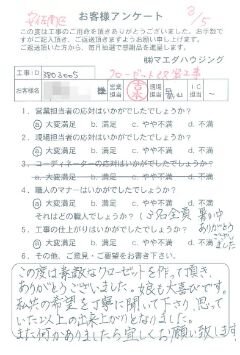 お客様アンケート
この度は工事のご用命を頂きありがとうございました。お手数で
すがご記入頂き、ご返送頂きますようお願い申し上げます。
ご返送頂いた方から、毎月抽選で感謝品を進呈します。
㈱マエダハウジング
工事ID
クローゼット
工事
お客様名
営業
担当
現場
担当
IC
担当
1. 営業担当者の応対はいかがでしたでしょうか?
a. 大変満足 b. 満足 c. やや不満 d. 不満
2. 現場担当者の応対はいかがでしたでしょうか?
a. 大変満足 b. 満足 c. やや不満 d. 不満
3. コーディネーターの応対はいかがでしたでしょうか?
a. 大変満足 b. 満足 c. やや不満 d. 不満
4. 職人のマナーはいかがでしたでしょうか?
a. 大変満足 b. 満足 c. やや不満 d. 不満
それはどの職人でしょうか?(
全員 暑い中
ありがとう
ございました
5. 工事の仕上がりはいかがでしたでしょうか?
a. 大変満足 b. 満足 c. やや不満 d. 不満
6. その他、ご意見・ご要望をお書き下さい
この度は素敵なクローゼットを作って頂き、
ありがとうございました。娘も大喜びです。
私共の希望を丁寧に聞いて下さり、思って
いた以上の出来上がりとなりました。
また何かありましたら宜しくお願い致します